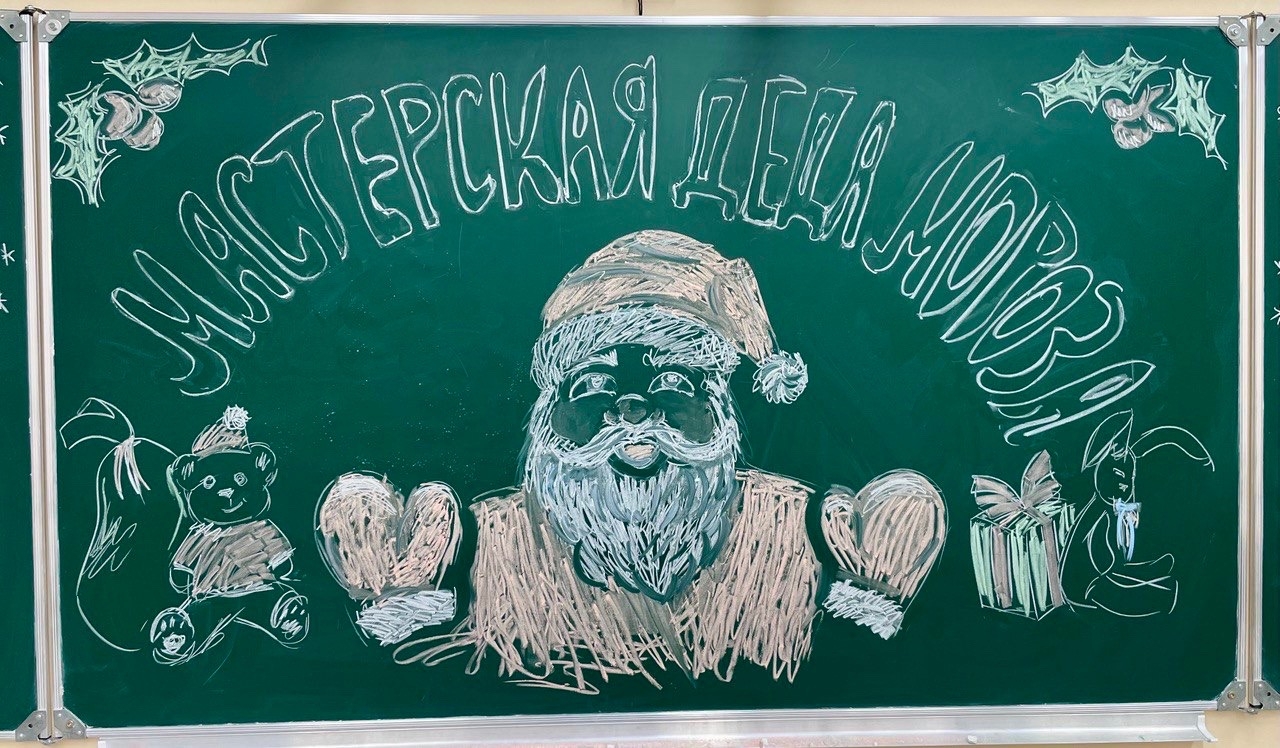 МАСТЕРСКАЯ ДЕДА МОРОЗА